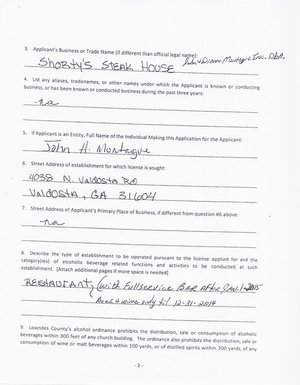 3. Applicant's Business or Trade Name (if different than official legal name)
John & Diane, Montague Inc. DBA,
SHORTY'S STEAK HOUSE
4. List any aliases, tradenames, or other names under which the Applicant is known or conducting
business, or has been known or conducted business during the past three years:
na
5. If Applicant is an Entity, Full Name of the Individual Making this Application for the Applicant:
John H. Montague
6. Street Address of establishment for which license is sought:
4038 N. VALDOSTA RD
VALDOSTA, GA 31604
7. Street Address of Applicant's Primary Place of Business, if different from question #6 above:
na
8. Describe the type of establishment to be operated pursuant to the license applied for and the
category(ies) of alcoholic beverage related functions and activities to be conducted at such
establishment. (Attach additional pages if more space is needed)
RESTAURANT, (with Full service BAR After Jan. 1-2015
Beer & wine only til 12-31-2014
9. Lowndes County's alcohol ordinance prohibits the distribution, sale or consumption of alcoholic
beverages within 300 feet of any church building. The ordinance also prohibits the distribution, sale or
consumption of wine or malt beverages within 100 yards, or of distilled spirits within 200 yards, of any
- 2 -